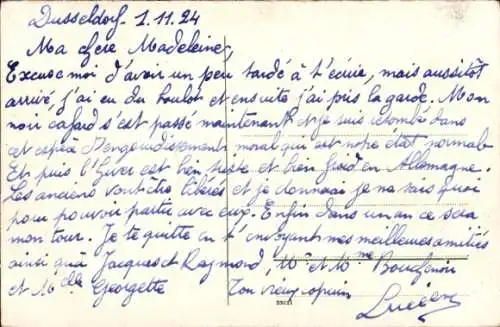 Dusseldorf. 1.11.24
Ma chere Madeleine,
Excuse moi d'avoir un peu tardé à t'écrire, mais aussitôt
arrivé, j'ai eu du boulot et ensuite j'ai pris la garde. Mon
noir cafard s'est passé maintenant et je suis retombé dans
cet espèce d'engourdissement moral qui est notre état normal.
Et puis l'hiver est bien triste et bien froid en Allemagne.
Les anciens vont être libérés et je donnerai je ne sais quoi
pour pouvoir partir avec eux. Enfin dans un an ce sera
mon tour. Je te quitte en t'envoyant mes meilleures amitiés
ainsi que Jacques et Raymond, Mr et Mme
et Melle Georgette
Ton vieux copain
Lucien